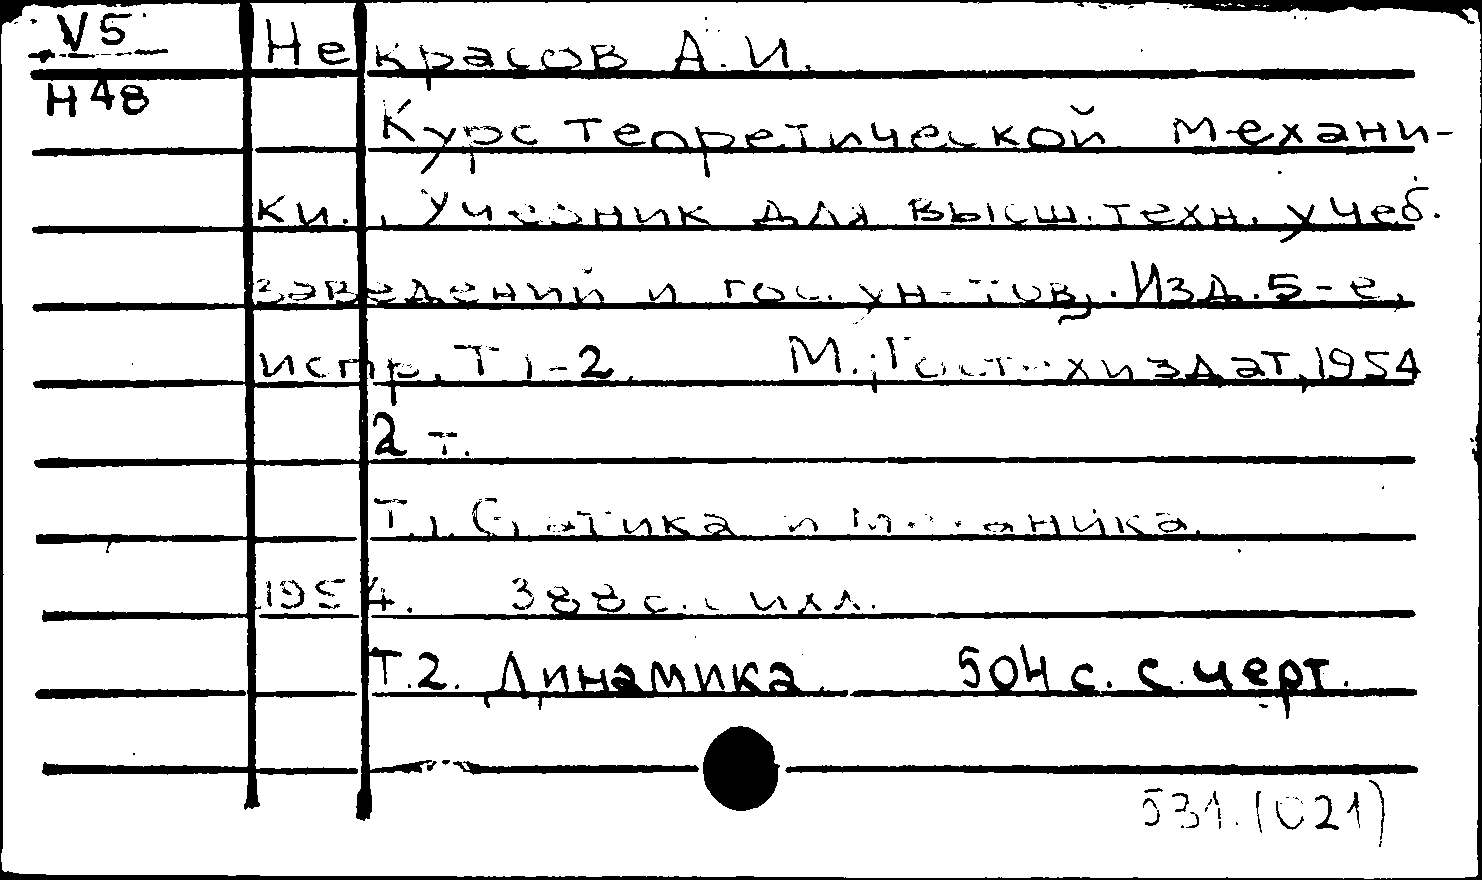 V5
Н48
Некрасов А.И.
Курс теоретической механи-
ки. Учебник для высш. техн. учеб.
заведений и гос. ун-тов. Изд. 5-е,
испр. Т. 1-2. М.; Гостехиздат, 1954
2 т.
Т.1. Статика и
1954. 388 с. с илл.
Т.2. Динамика. 504 с. с черт.
531.(021)